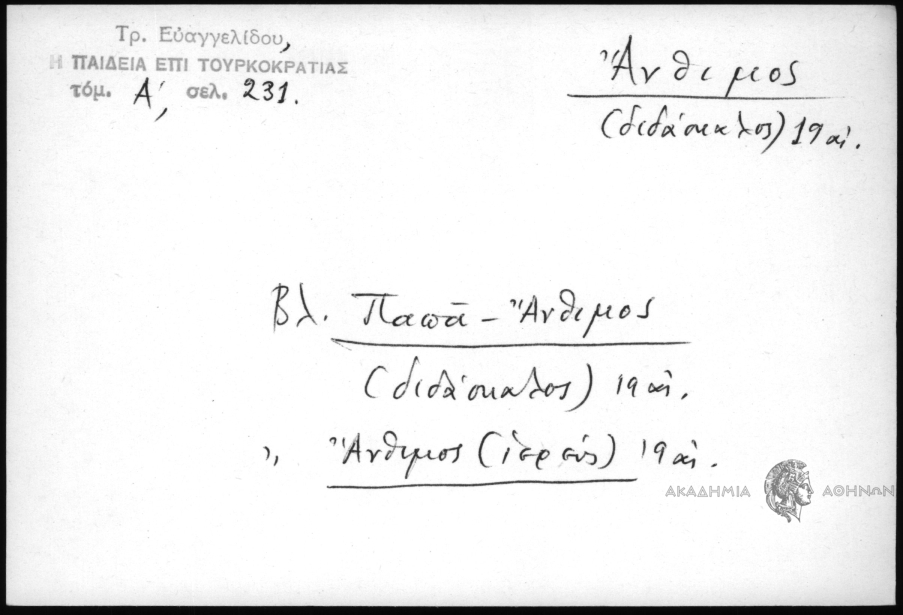 Τρ. Εὐαγγελίδου,
Η ΠΑΙΔΕΙΑ ΕΠΙ ΤΟΥΡΚΟΚΡΑΤΙΑΣ
τόμ. Α΄, σελ. 231.
Ἄνθιμος
(διδάσκαλος) 19 αἰ.
Βλ. Παπᾶ - Ἄνθιμος
(διδάσκαλος) 19 αἰ.
" Ἄνθιμος (ἱερεύς) 19 αἰ.
ΑΚΑΔΗΜΙΑ ΑΘΗΝΩΝ